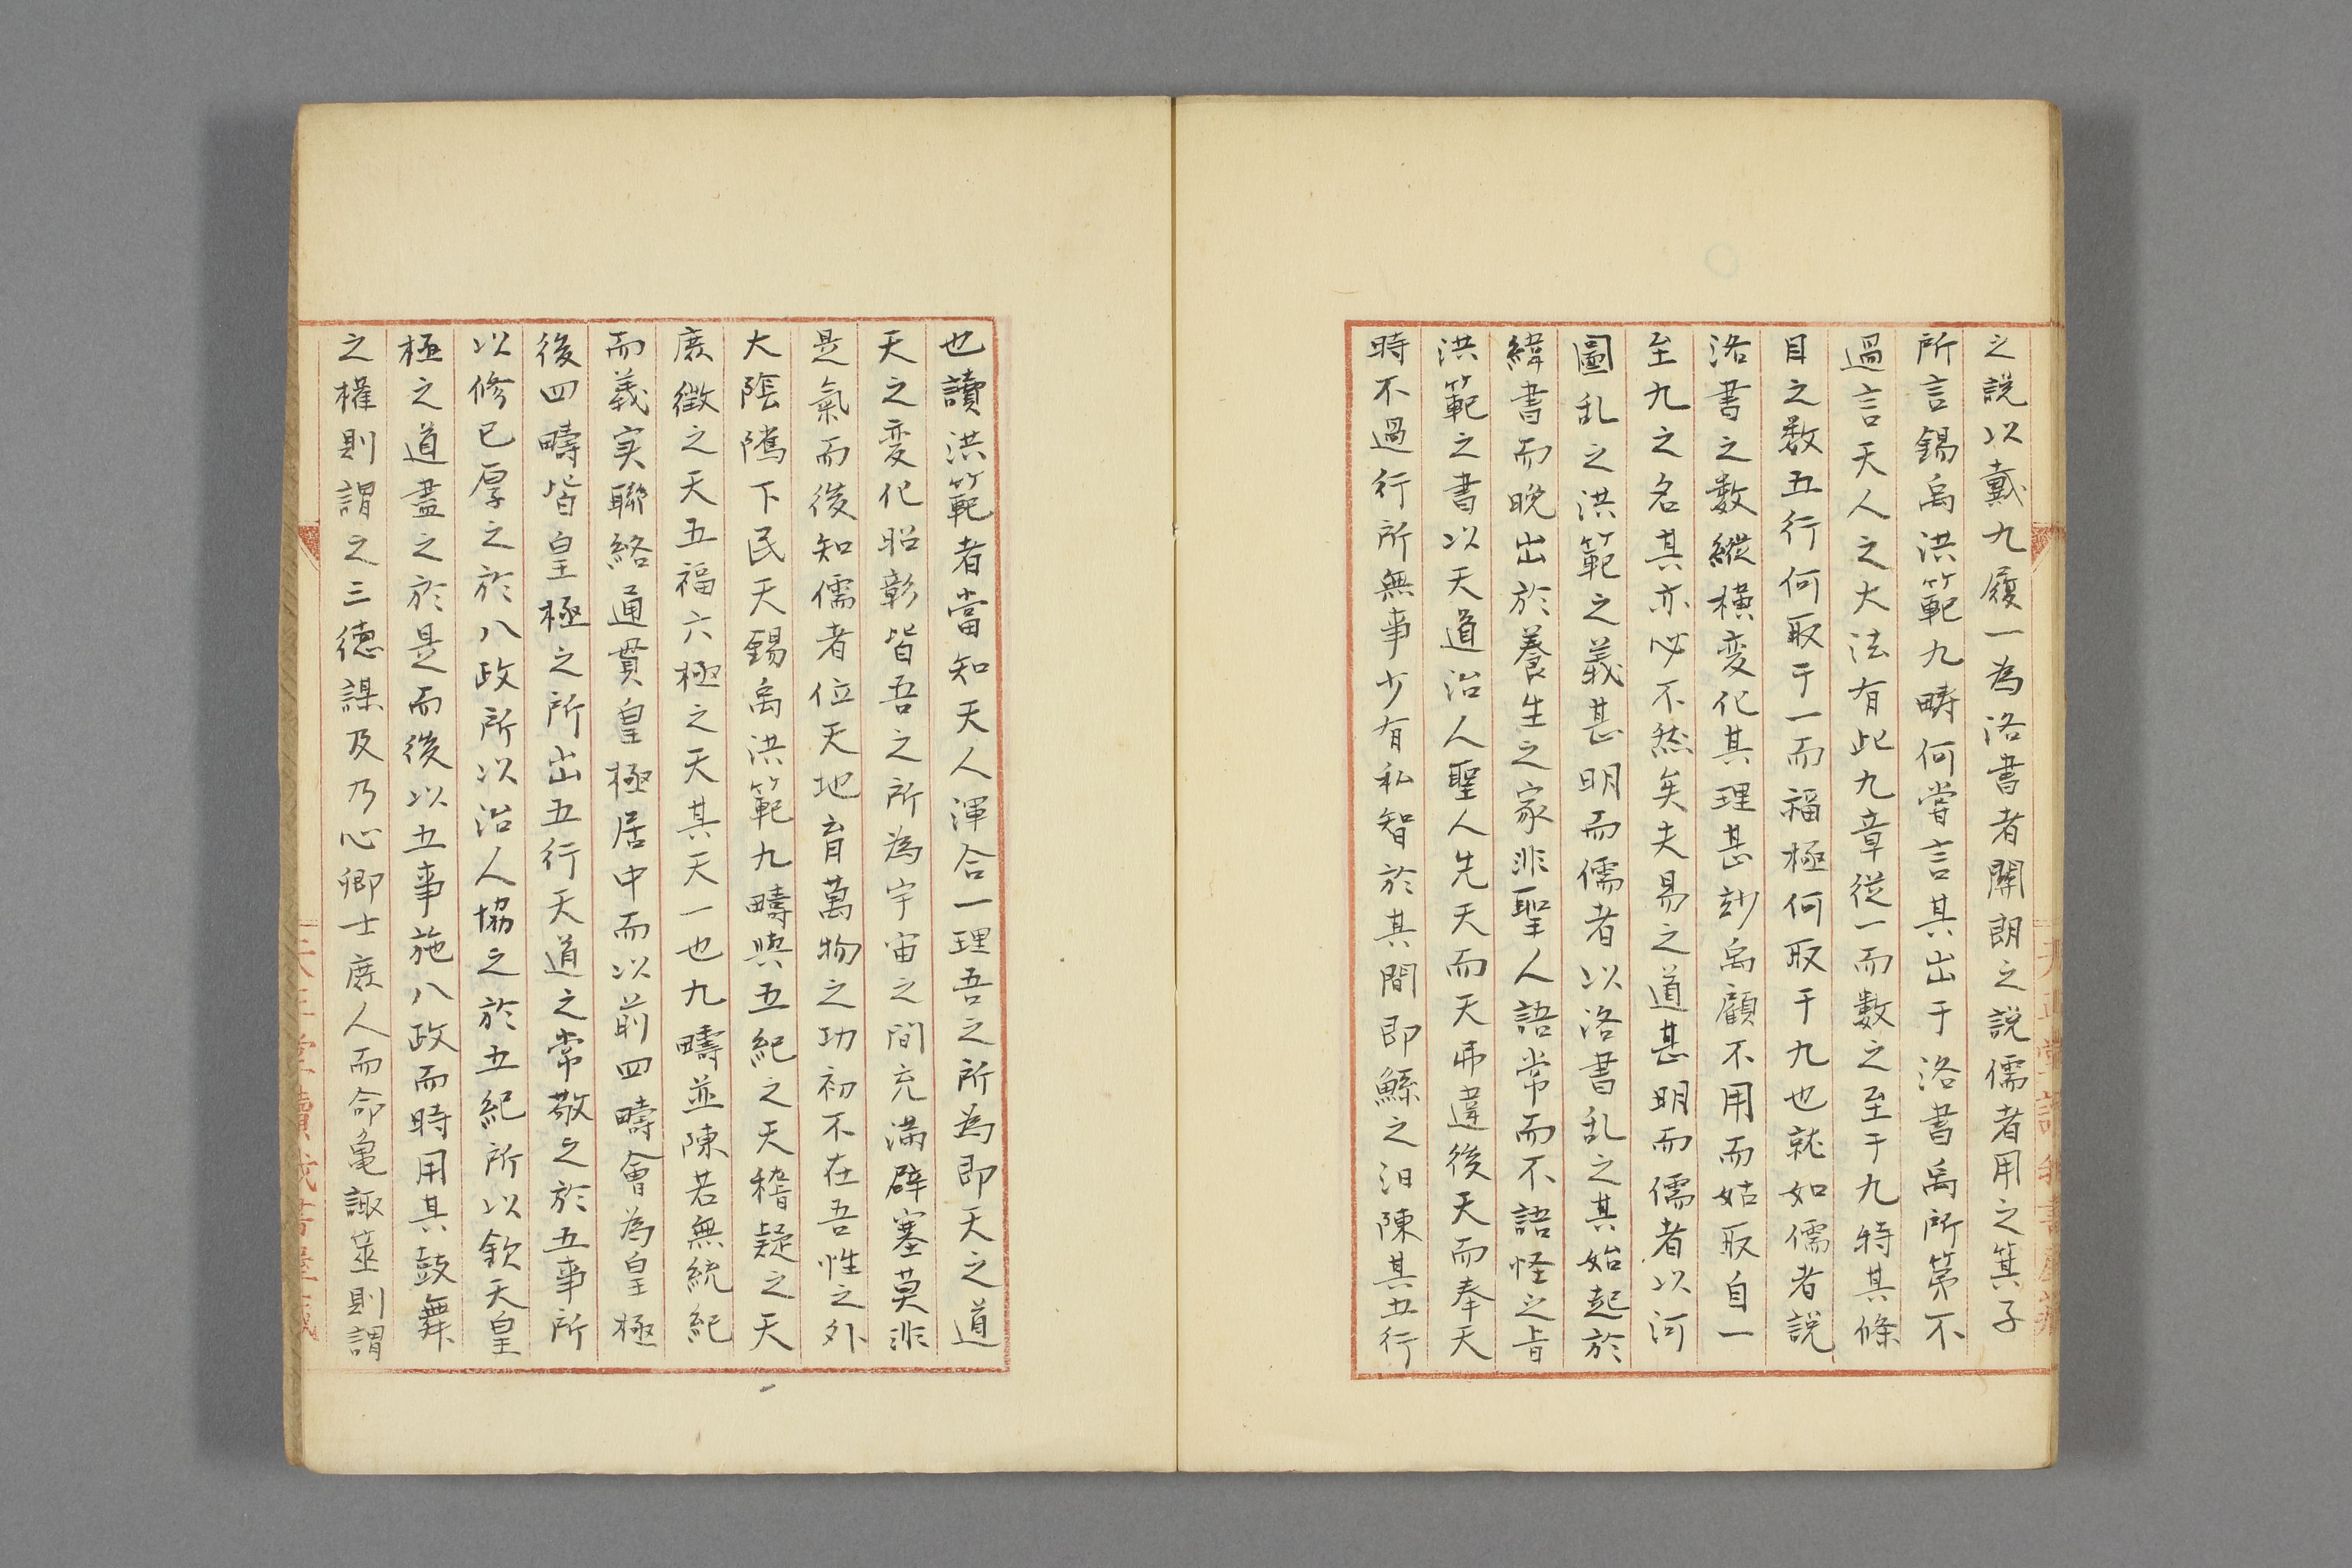 之説以戴九履一為洛書者關朗之説儒者用之箕子
所言錫禹洪範九畴何嘗言其出于洛書禹所第不
過言天人之大法有此九章從一而數之至于九特其條
目之数五行何取于一而福極何取于九也就如儒者説
洛書之數縱橫変化其理甚玅禹顧不用而姑取自一
至九之名其亦必不然矣夫易之道甚明而儒者以河
圖乱之洪範之義甚明而儒者以洛書乱之其始起於
緯書而晚出於養生之家非聖人語常而不語怪之旨
洪範之書以天道治人聖人先天而天弗違後天而奉天
時不過行所無事少有私智於其間即鯀之汩陳其五行
也讀洪範者當知天人渾合一理吾之所為即天之道
天之変化昭彰皆吾之所為宇宙之間充滿辟塞莫非
是氣而後知儒者位天地育萬物之功初不在吾性之外
大陰隲下民天錫禹洪範九疇與五紀之天稽疑之天
庶徵之天五福六極之天其天一也九疇並陳若無統紀
而義实聯絡通貫皇極居中而以前四疇會為皇極
後四疇皆皇極之所出五行天道之常敬之於五事所
以修已厚之於八政所以治人協之於五紀所以欽天皇
極之道盡之於是而後以五事施八政而時用其鼓舞
之權則謂之三德謀及乃心卿士庶人而命亀諏筮則謂